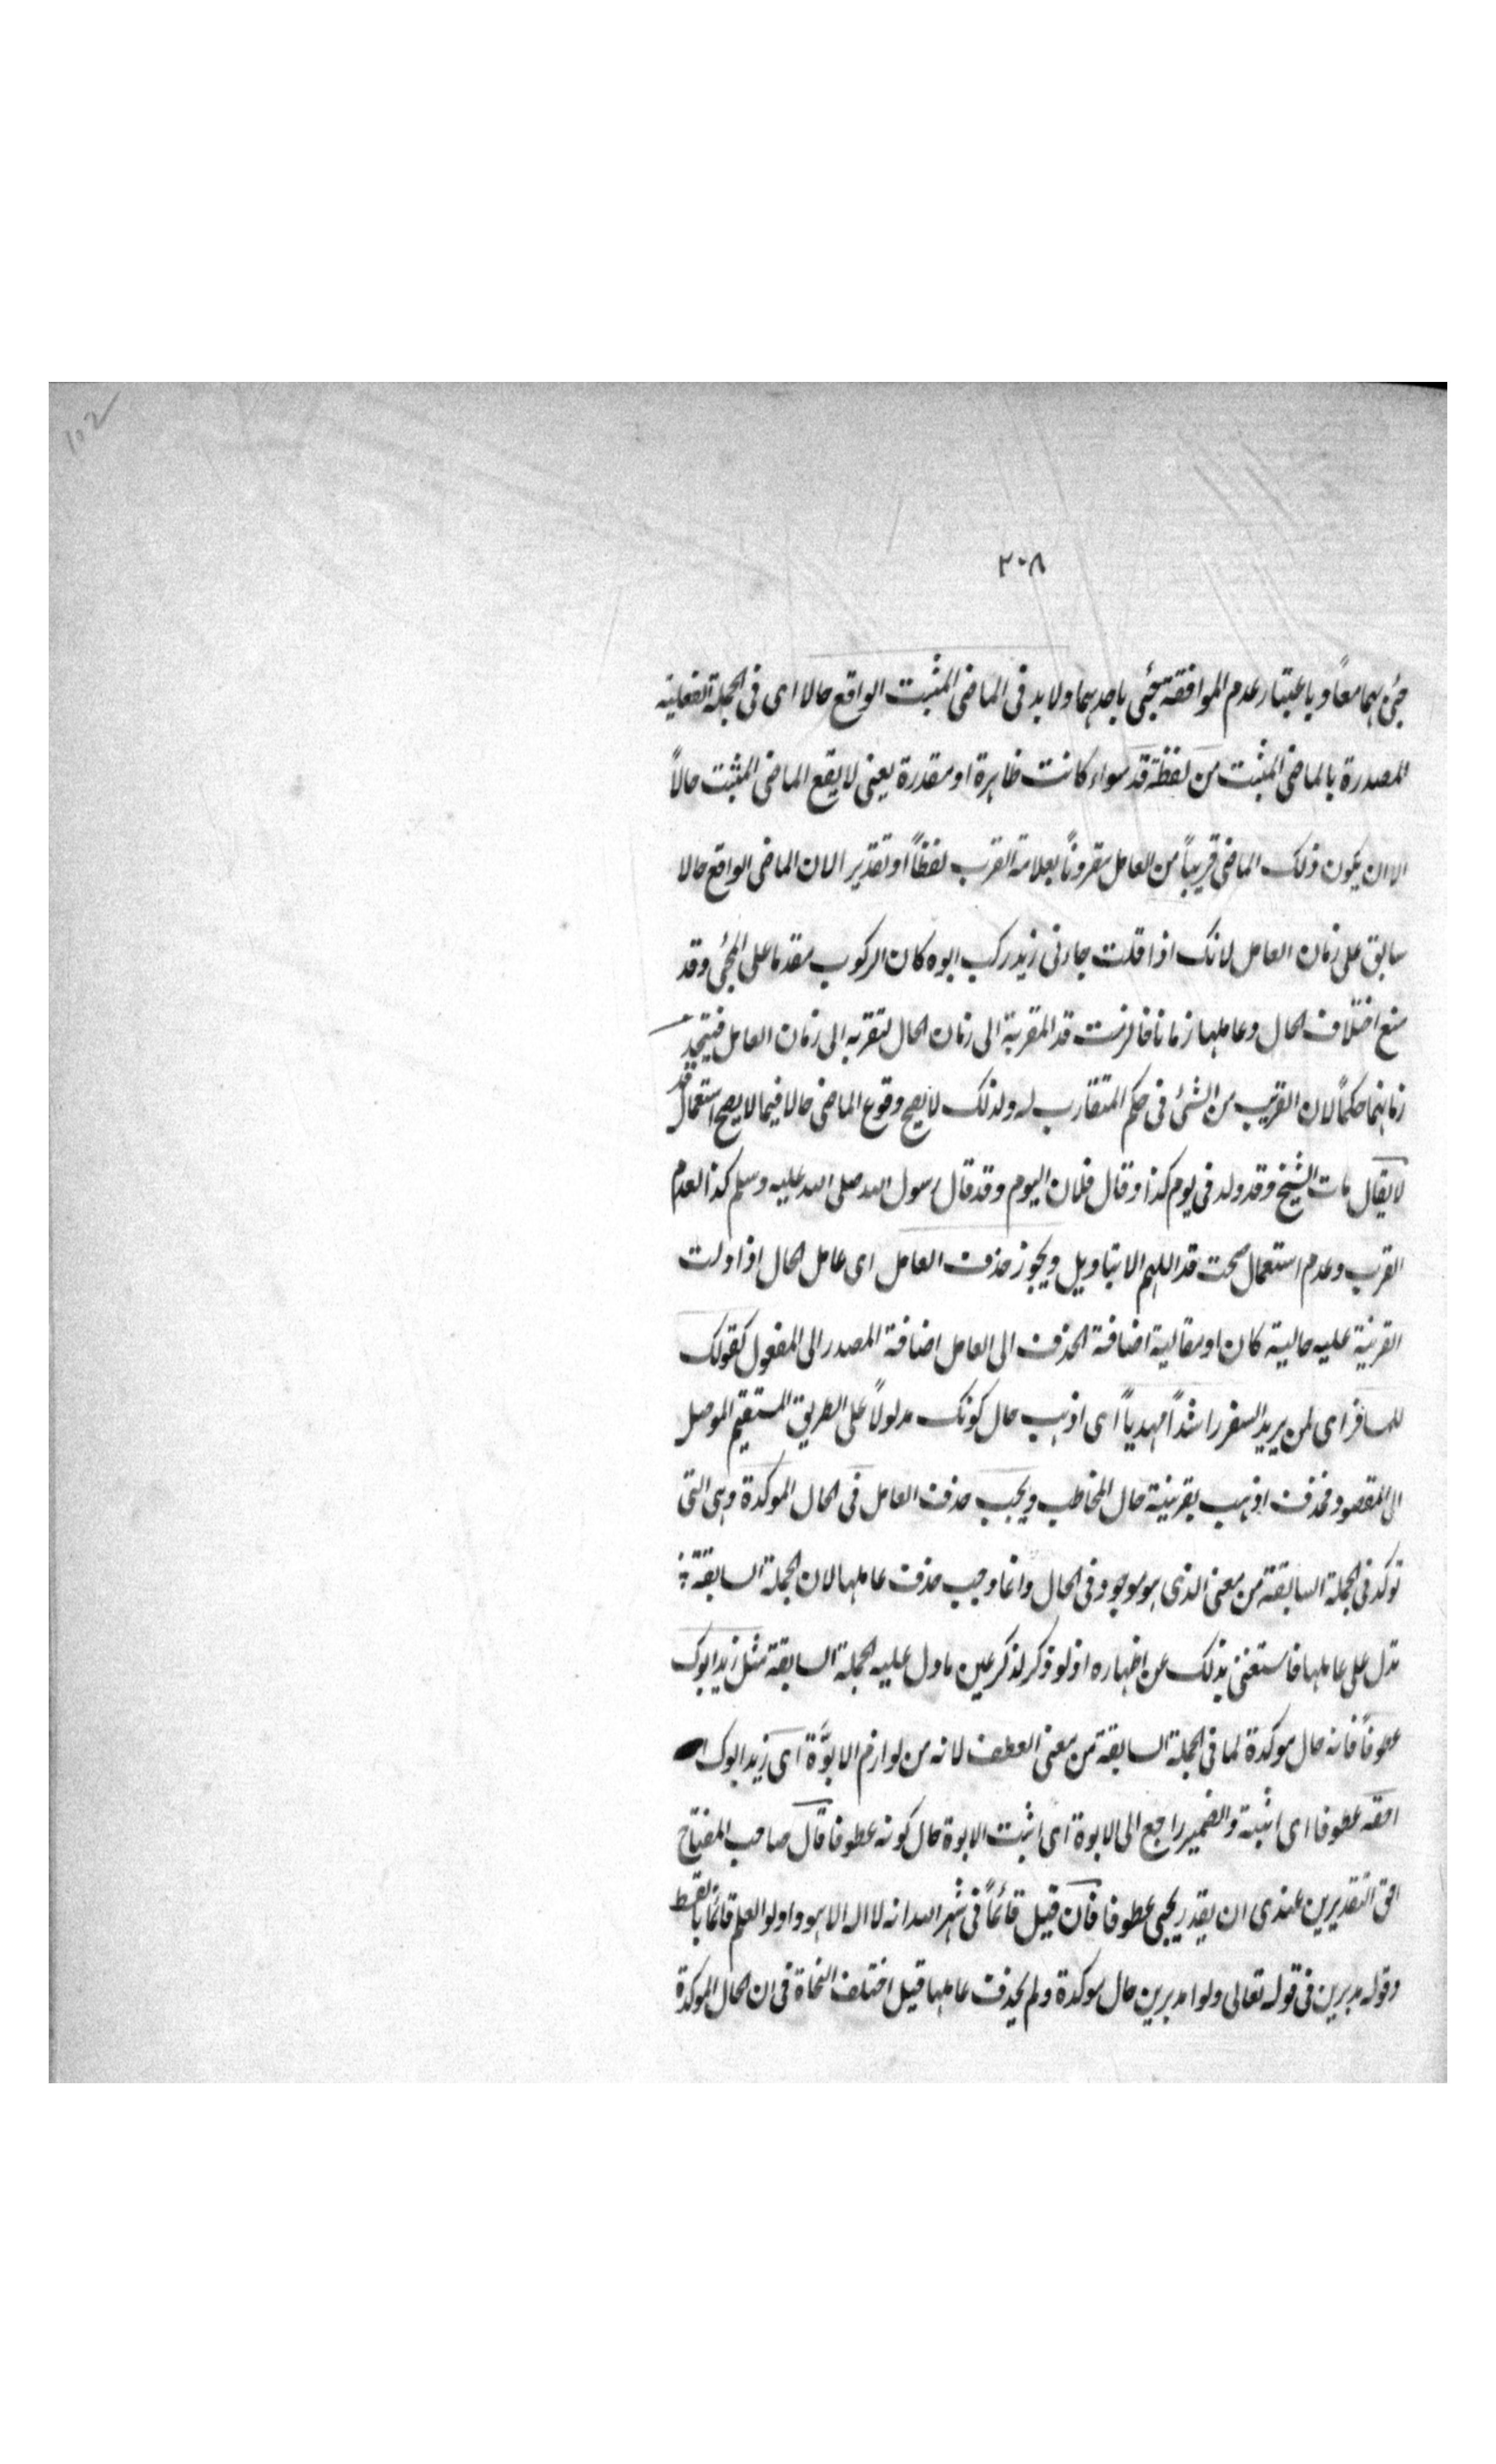 102
٢٠٨
جئ بهما معاً وباعتبار عدم الموافقة يجئ باحدهما ولا بد فى الماضى المثبت الواقع حالا اى فى الجملة الفعلية
المصدرة بالماضى المثبت من لفظة قد سواء كانت ظاهرة او مقدرة يعنى لا يقع الماضى المثبت حالاً
الا ان يكون ذلك الماضى قريباً من العامل مقروناً بعلامة القرب لفظاً او تقديرا لان الماضى الواقع حالا
سابق على زمان العامل لانك اذا قلت جاءنى زيد ركب ابوه كان الركوب مقدما على المجئ وقد
منع اختلاف الحال وعاملها زمانا فالزمت قد المقربة الى زمان الحال لتقربه الى زمان العامل فيتحد
زمانهما حكماً لان القريب من الشئ فى حكم المتقارب له ولذلك لا يصح وقوع الماضى حالا فيما لا يصح استعمال قد
لا يقال مات الشيخ وقد ولد فى يوم كذا وقال فلان اليوم وقد قال رسول الله صلى الله عليه وسلم كذا لعدم
القرب وعدم استعمال صحت قد اللهم الا بتاويل ويجوز حذف العامل اى عامل الحال اذا دلت
القرينة عليه حالية كان او مقالية اضافة الحذف الى العامل اضافة المصدر الى المفعول كقولك
للمسافر اى لمن يريد السفر راشداً مهدياً اى اذهب حال كونك مدلولاً على الطريق المستقيم الموصل
الى المقصود فحذف اذهب بقرينة حال المخاطب ويجب حذف العامل فى الحال الموكدة وهى التى
توكد فى الجملة السابقة من معنى الذى هو موجود فى الحال وانما وجب حذف عاملها لان الجملة السابقة
تدل على عاملها فاستغنى بذلك عن اظهاره اذ لو ذكر لذكر عين ما دل عليه الجملة السابقة مثل زيد ابوك
عطوفاً فانه حال موكدة لما فى الجملة السابقة من معنى العطف لانه من لوازم الابوَّة اى زيد ابوك
احقه عطوفا اى اثبته والضمير راجع الى الابوة اى اثبت الابوة حال كونه عطوفا قال صاحب المفتاح
احق التقديرين عندى ان يقدر يحبى عطوفا فان قيل قائماً فى شهد الله انه لا اله الا هو واولو العلم قائما بالقسط
وقوله مدبرين فى قوله تعالى ولوا مدبرين حال موكدة ولم يحذف عاملها قيل اختلف النحاة فى ان الحال الموكدة